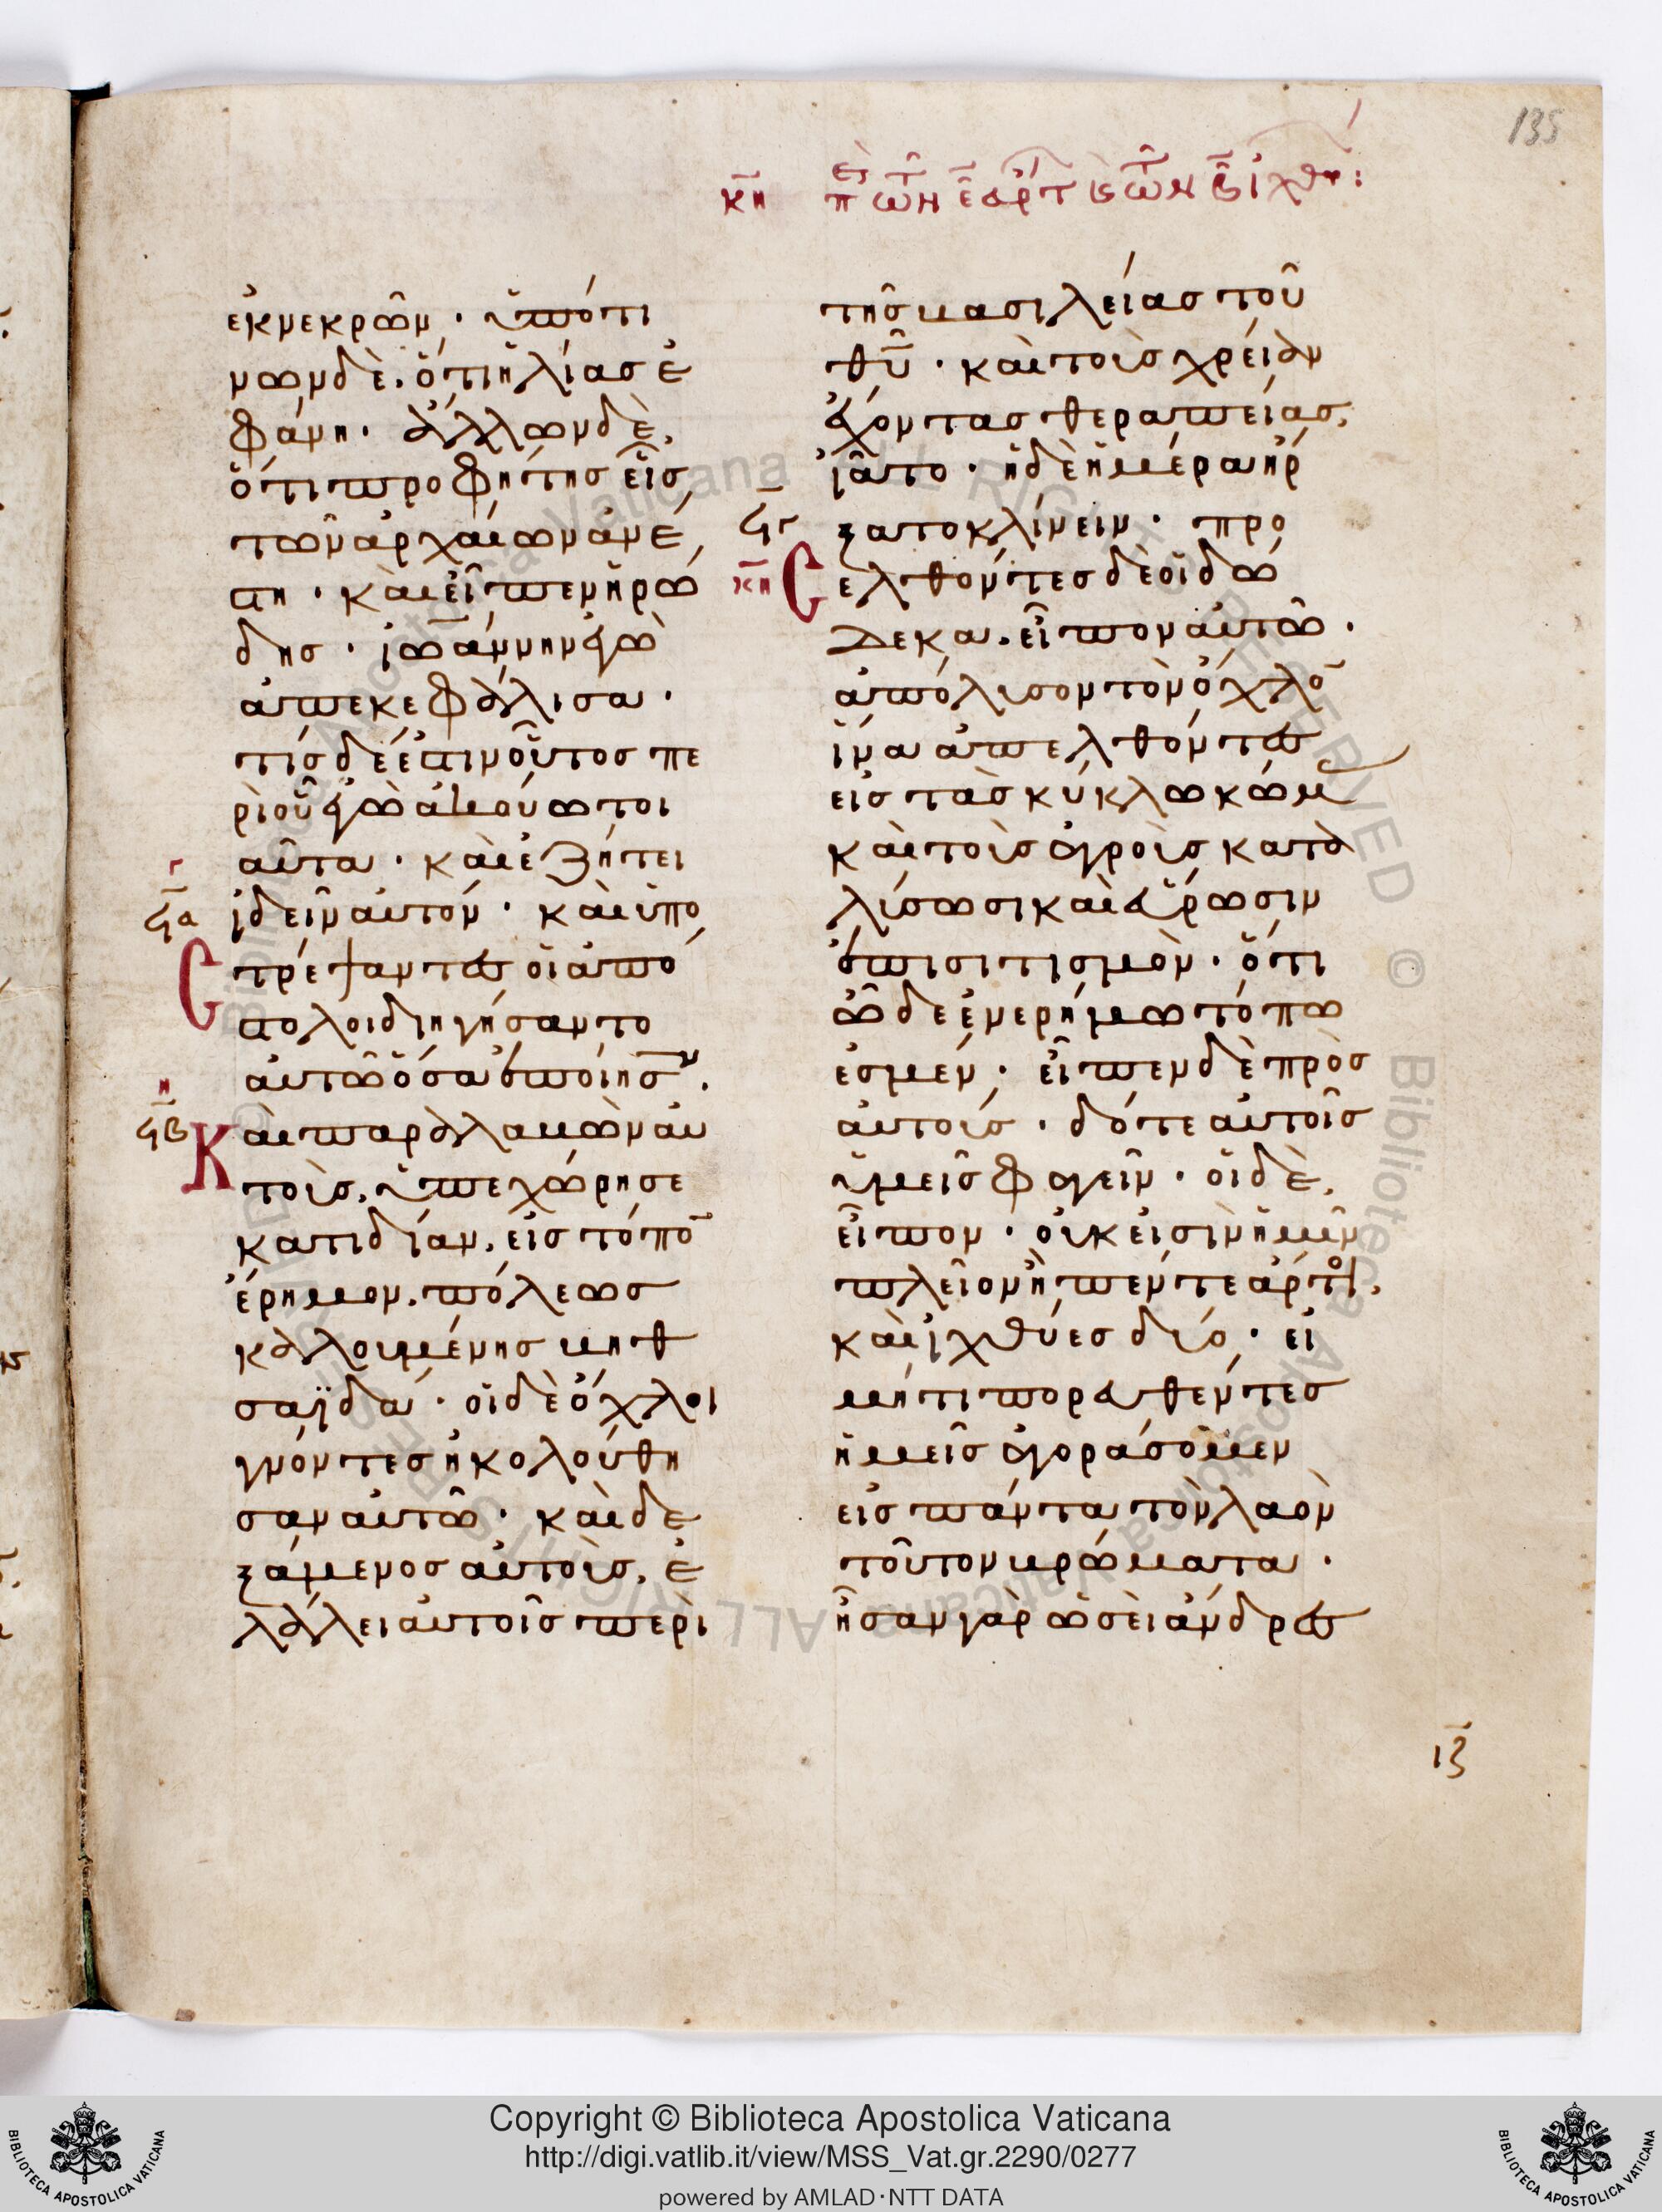 135
κη
ἐκ νεκρῶν · ὑπό τι
νων δὲ · ὅτι ἠλίας ἐ
φάνη · ἄλλων δὲ ,
ὅτι προφήτης εἷς
τῶν ἀρχαίων ἀνέ
στη · καὶ εἶπεν ἡρώ
δης · ἰωάννην ἐγὼ
ἀπεκεφάλισα ·
τίς δέ ἐστιν οὗτος πε
ρὶ οὗ ἐγὼ ἀκούω τοι
αῦτα · καὶ ἐζήτει
ϟα ἰδεῖν αὐτόν · καὶ ὑπο
στρέψαντες οἱ ἀπό
στολοι διηγήσαντο
αὐτῶ ὅσα ἐποίησαν .
ϟβ Καὶ παραλαβὼν αὐ
τοὺς , ὑπεχώρησε
κατιδίαν , εἰς τόπο̄
ἔρημον , πόλεως
καλουμένης βηθ
σαϊδά · οἱ δὲ ὄχλοι
γνόντες ἠκολούθη
σαν αὐτῶ · καὶ δε
ξάμενος αὐτοὺς , ἐ
λάλει αὐτοῖς περὶ
τῆς βασιλείας τοῦ
θῦ · καὶ τοὺς χρείαν
ἔχοντας θεραπείας ,
ἰᾶτο · ἡ δὲ ἡμέρα ἤρ
ϟγ ξατο κλίνειν · προ
κη σελθόντες δὲ οἱ δώ
δεκα , εἶπον αὐτῶ ·
ἀπόλυσον τὸν ὄχλο̄
ἵνα ἀπελθόντες
εἰς τὰς κύκλω κώμ
καὶ τοὺς ἀγροὺς κατα
λύσωσι καὶ εὕρωσιν
ἐπισιτισμὸν · ὅτι
ὧδε ἐν ερήμω τόπω
ἐσμέν · εἶπεν δὲ πρὸς
αὐτούς · δότε αὐτοῖς
ὑμεῖς φαγεῖν · οἱ δὲ ,
εἶπον · οὐκ εἰσὶν ἡμῖν
πλεῖον ἢ πέντε άρτοι ,
καὶ ἰχθύες δύο · εἰ
μήτι πορευθέντες
ἡμεῖς ἀγοράσομεν
εἰς πάντα τὸν λαὸν
τοῦτον βρώματα ·
ἦσαν γὰρ ὡσεὶ ἄνδρες
ιζ
Copyright © Biblioteca Apostolica Vaticana
http://digi.vatlib.it/view/MSS_Vat.gr.2290/0277
powered by AMLAD·NTT DATA
BIBLIOTECA APOSTOLICA VATICANA
BIBLIOTECA APOSTOLICA VATICANA